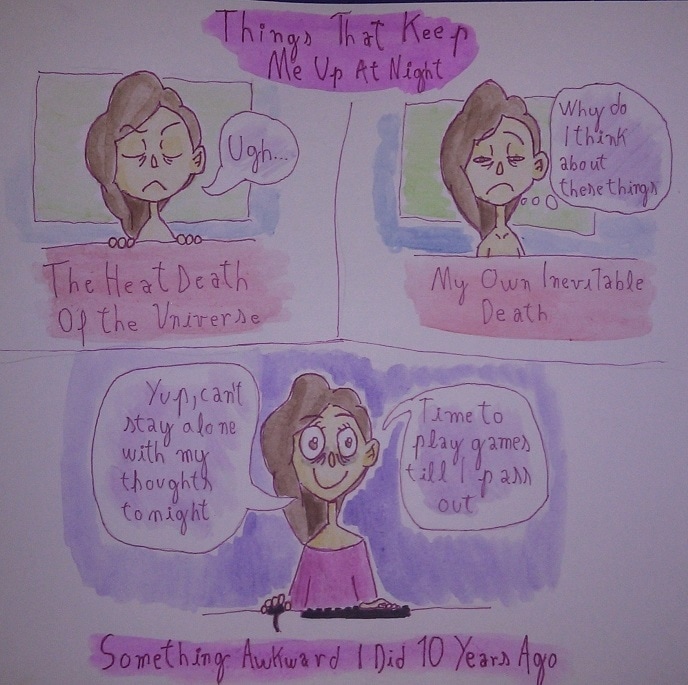 Things That Keep
Me Up At Night
Ugh...
The Heat Death
Of the Universe
Why do
I think
about
these things
My Own Inevitable
Death
Yup, can't
stay alone
with my
thoughts
tonight
Time to
play games
till I pass
out
Something Awkward I Did 10 Years Ago